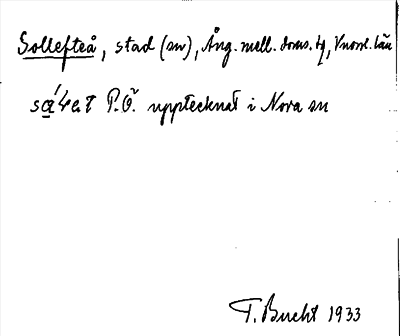 Sollefteå, stad (sn), Ång. mell. doms. , Vnorrl. län
P.Ö. upptecknat i Nora sn
T. Bucht 1933